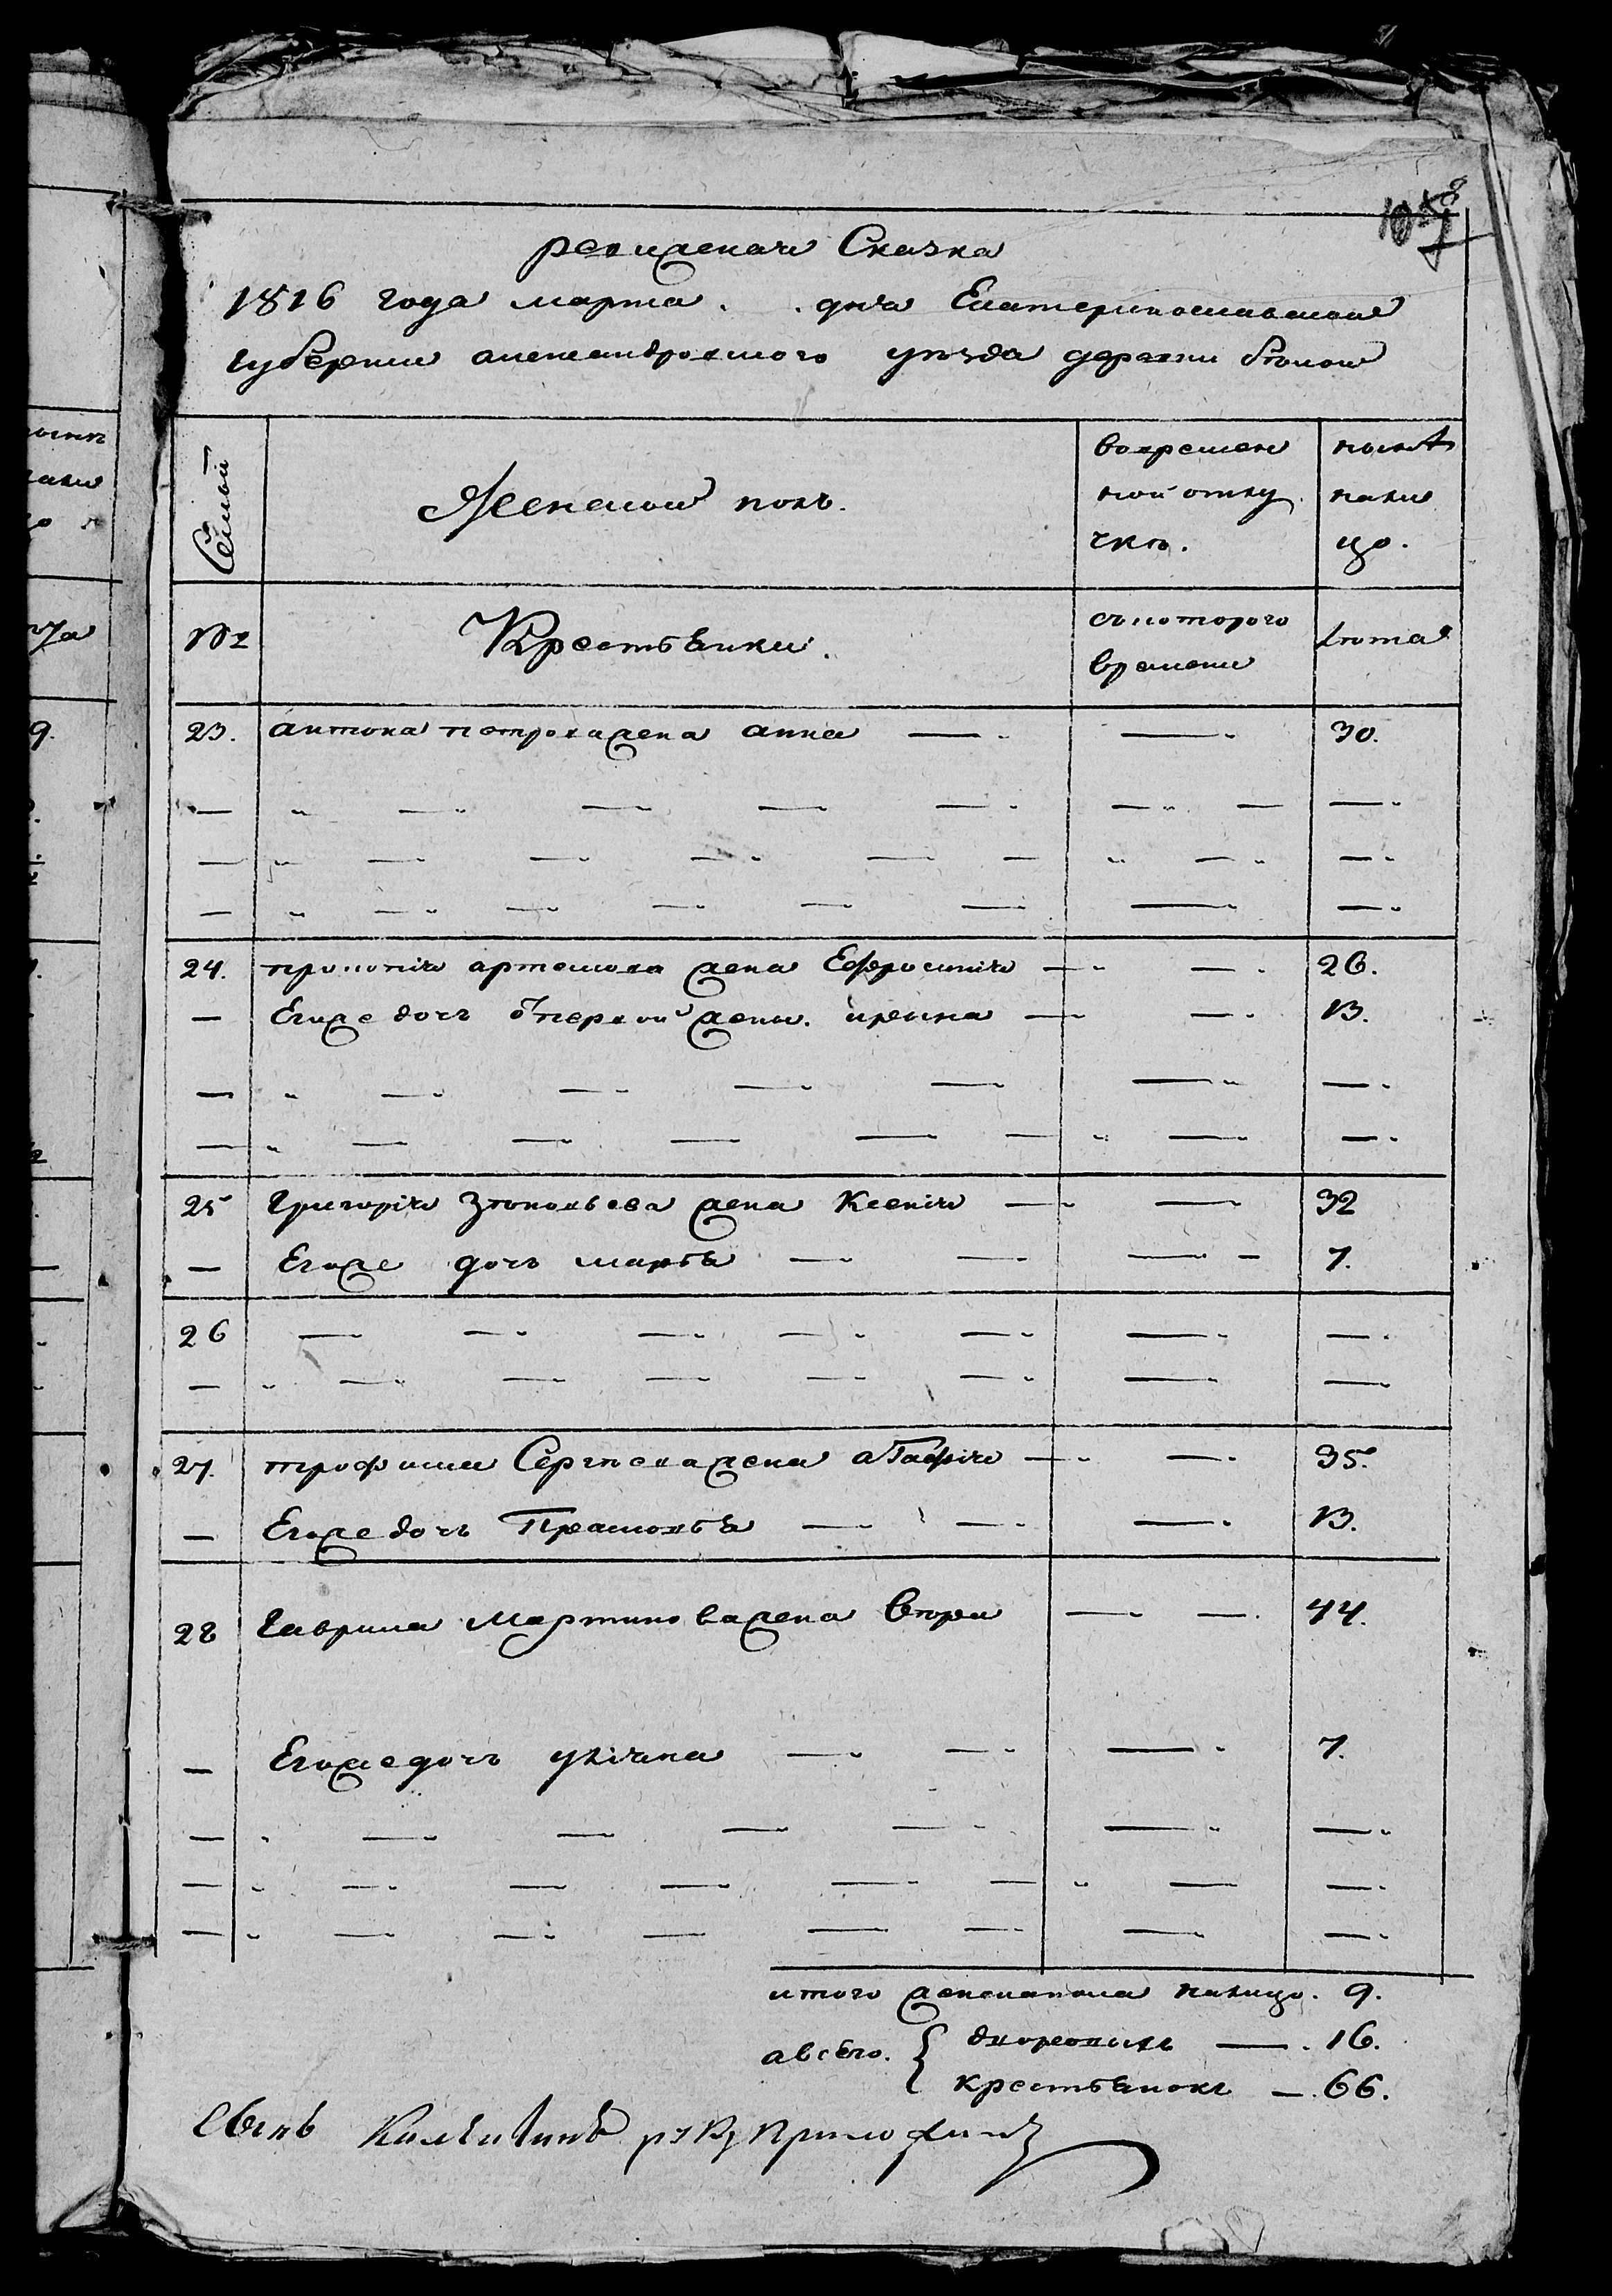 ревижская Сказка
1816 года марта . . дня Екатеринославской
губернии александровского уезда деревни белой
Семьи
Женской полъ.
вовремен
ной отлу
чкѣ.
нынѣ
нали
цо.
№
Крестьянки.
съ котораго
времени
лѣта
23. антона петрова жена анна — . — . 30.
24. прокопія артемова жена Ефросинія — . — . 26.
— Егоже дочь от первой жены. ирина — — . 13.
25 Григорія жена Ксенія — . — . 32
— Егоже дочь марѳа — . — . — . — 7.
26
27. трофима Сергѣева жена агафія — . — . 35.
— Егоже дочь — . — . — . 13.
28 Гаврила мартинова жена — . — . 44.
— Егоже дочь улiяна — . — . — . 7.
итого женска пола налицо. 9.
а всего. { дворовыхъ — . 16.
крестьянокъ — . 66.
руку приложилъ